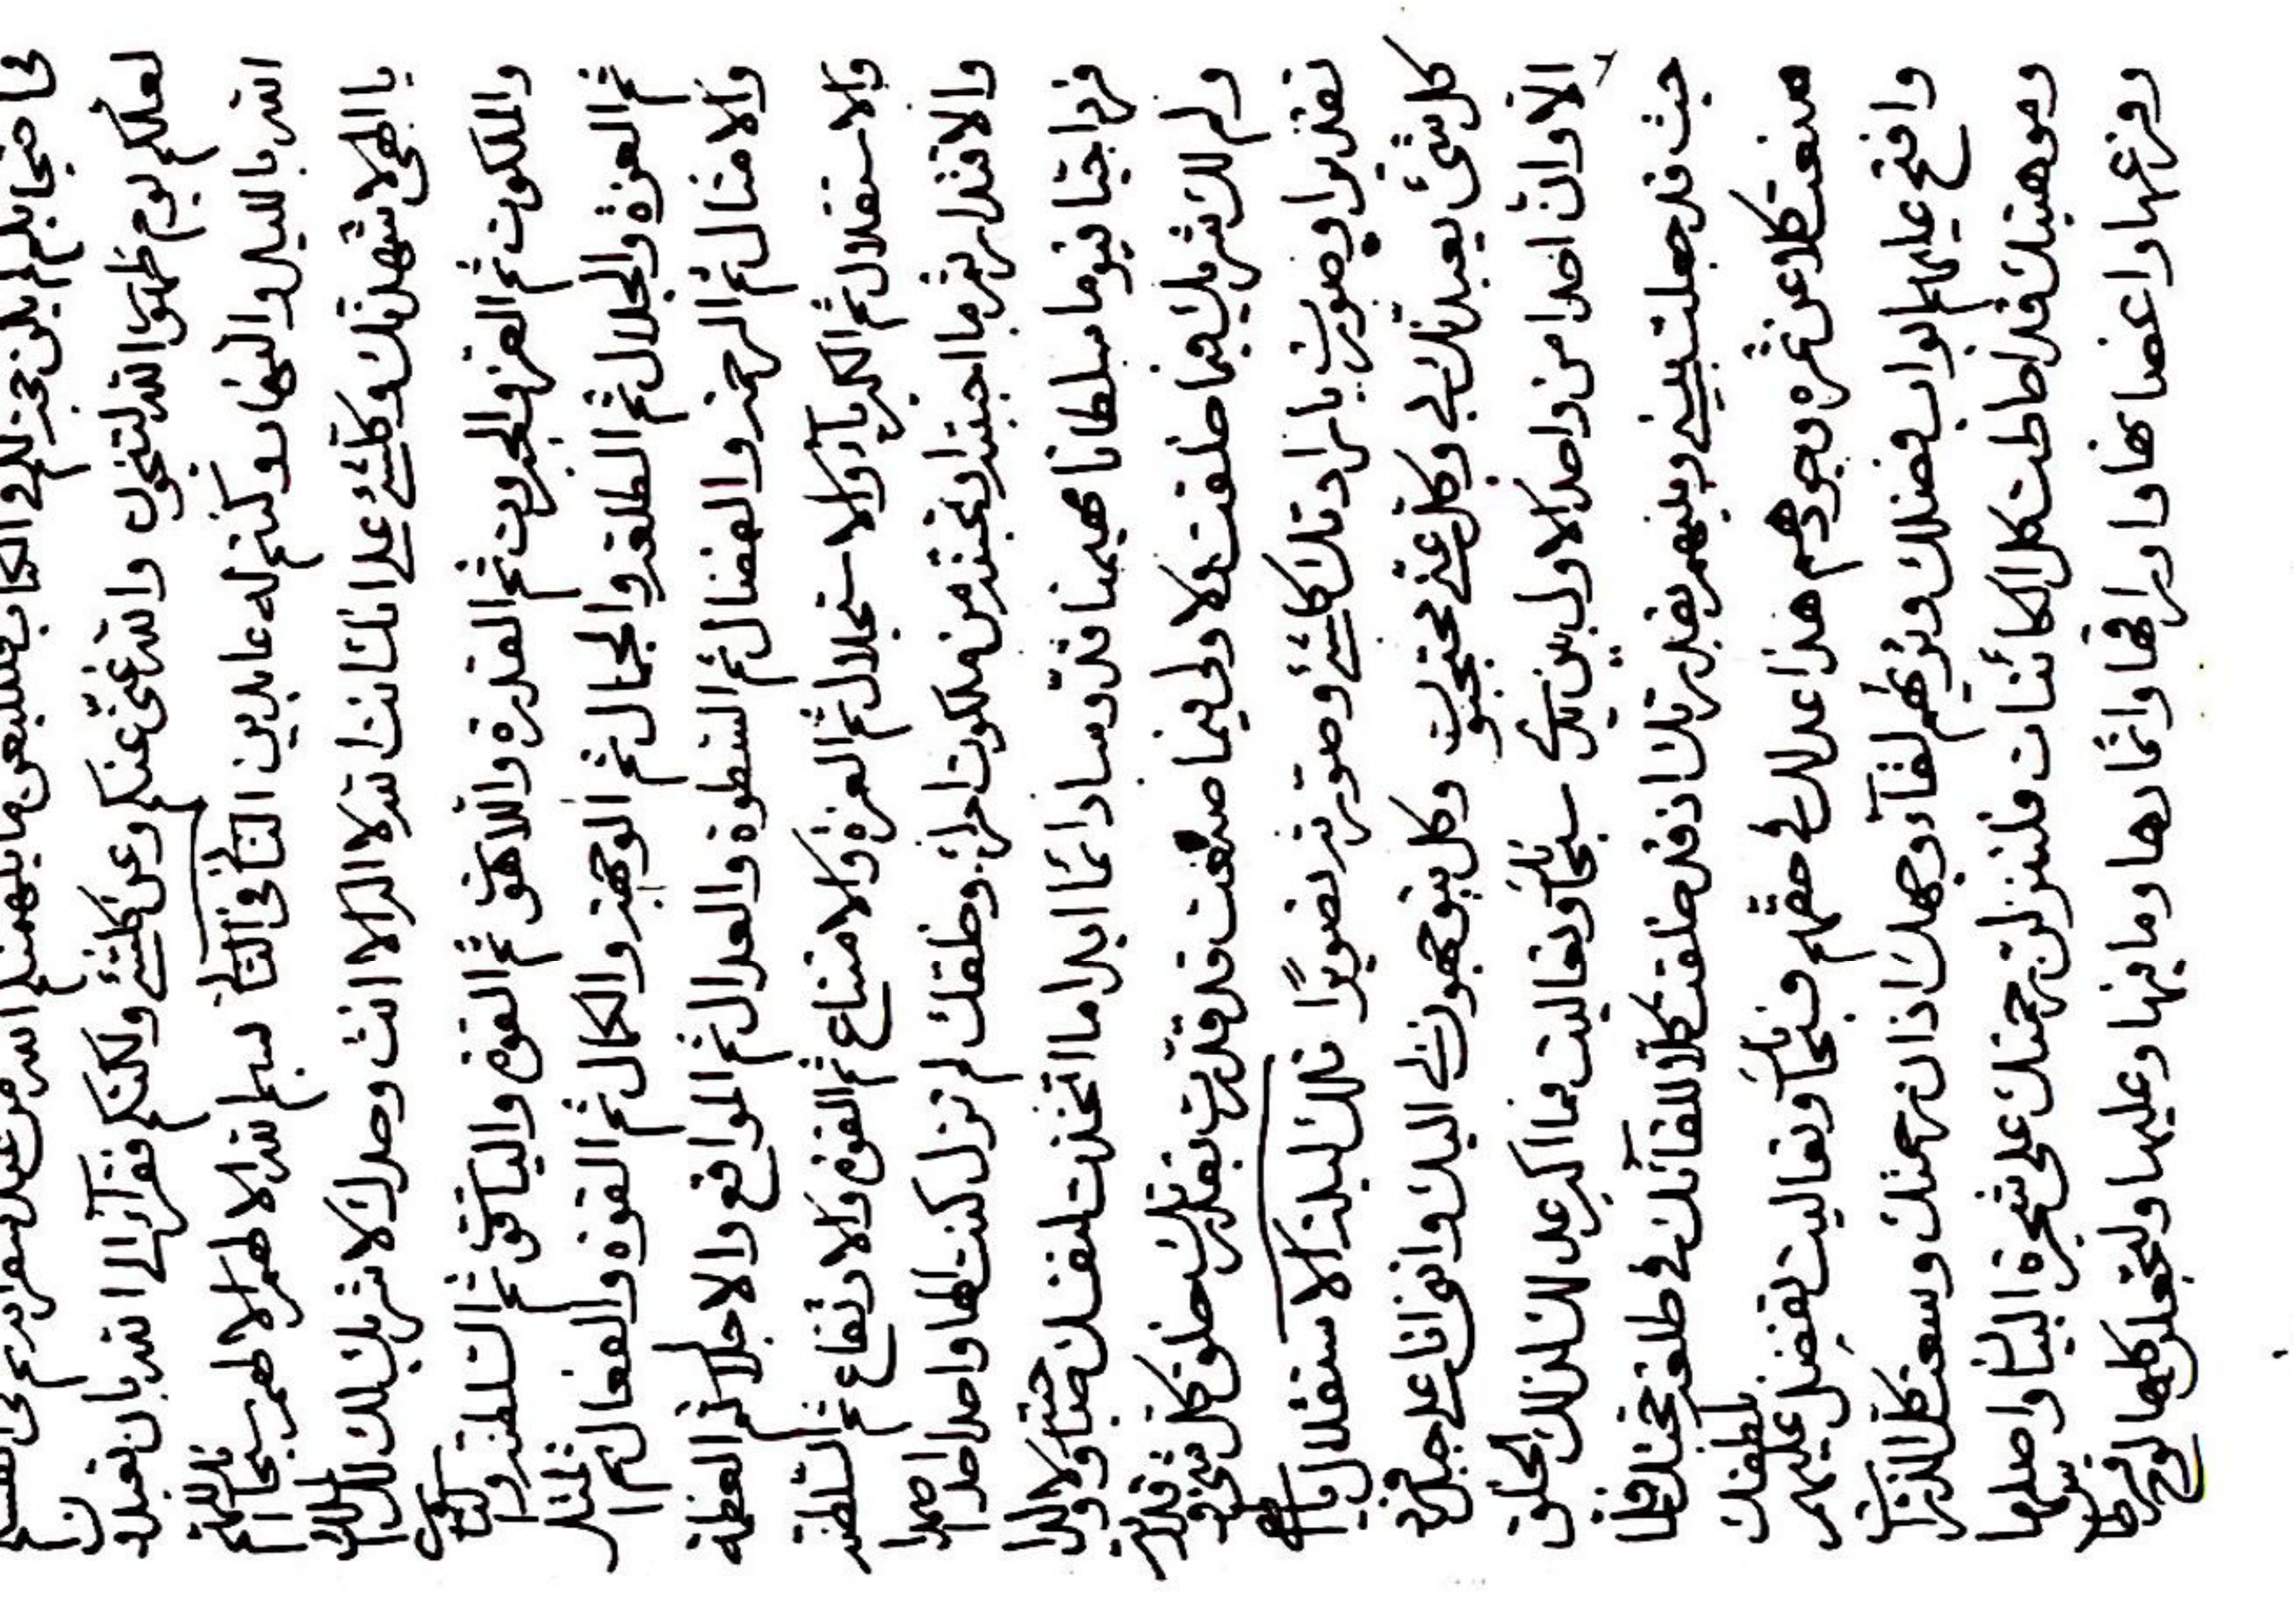 لعلكم يوم ظهور الله لتنجون والله غنى عنكم وعن كلشئ ولكنكم فقرآء الى الله بان تعبدن
الله بالليل والنهار وكنتم له عابدين الثانى فى الثانى بسم الله الاظهر الاظهر سبحانك اللهم
يا الهى لاشهدنك وكلشئ على انك انت الله لا اله الا انت وحدك لا شريك لك لك الملك
والملكوت ثم العز والجبروت ثم القدرة واللاهوت ثم القوة والياقوت ثم السلطنة والناسوت
ثم العزة والجلال ثم الطلعة والجمال ثم الوجهة والكمال ثم القوة والفعال ثم المثل
والامثال ثم الرحمة والفضال ثم السطوة والعدال ثم المواقع والاجلال ثم العظمة
والاستقلال ثم الكبريآء والاستجلال ثم العزة والامتناع ثم القوة والارتفاع ثم السلطنة
والاقتدار ثم ما احببته او تحبنه من ملكوت امرك وخلقك لم تزل كنت الها واحدا احدا صمدا
فردا حيا قيوما سلطانا مهيمنا قدوسا دائما ابدا ما اتخذت لنفسك صاحبة ولا ولدا
ولم يك لك شريك فيما خلقت ولا ولى فيما صنعت قد قدرت بقدرتك خلق كل شئ وقدرته
تقديرا وصورت بارادتك كلشئ وصورته تصويرا تلك لبنة الاستقلال يا الهى
كل شئ يعبدنك بى وكل عنى محتجبون وكل يتوجهون بى اليك وانى انا على جبل فرد
الا وان احدا من واحد الاول بين يدى سبحانك وتعاليت فما اكبر عدلك تلك الخلق
حيث قد جعلت بينى وبينهم بقدرتك اذ قد خلقت كلا للقآئك فى طلعة محبتك فلما
منعت كلا عن ثمرة وجودهم هذا عدلك فى حقهم فسبحانك وتعاليت تفضل عليهم بلطفك
وافتح عليهم ابواب فضلك وترهم لقآء وجهك اذ ان رحمتك وسعت كل الذرآت
وموهبتك قد احاطت كل الكائنات فلتنزلن رحمتك على شجرة البيان واصلها
وفرعها واغصانها واوراقها واثمارها وما فيها وعليها ولتجعلن كلها لوح